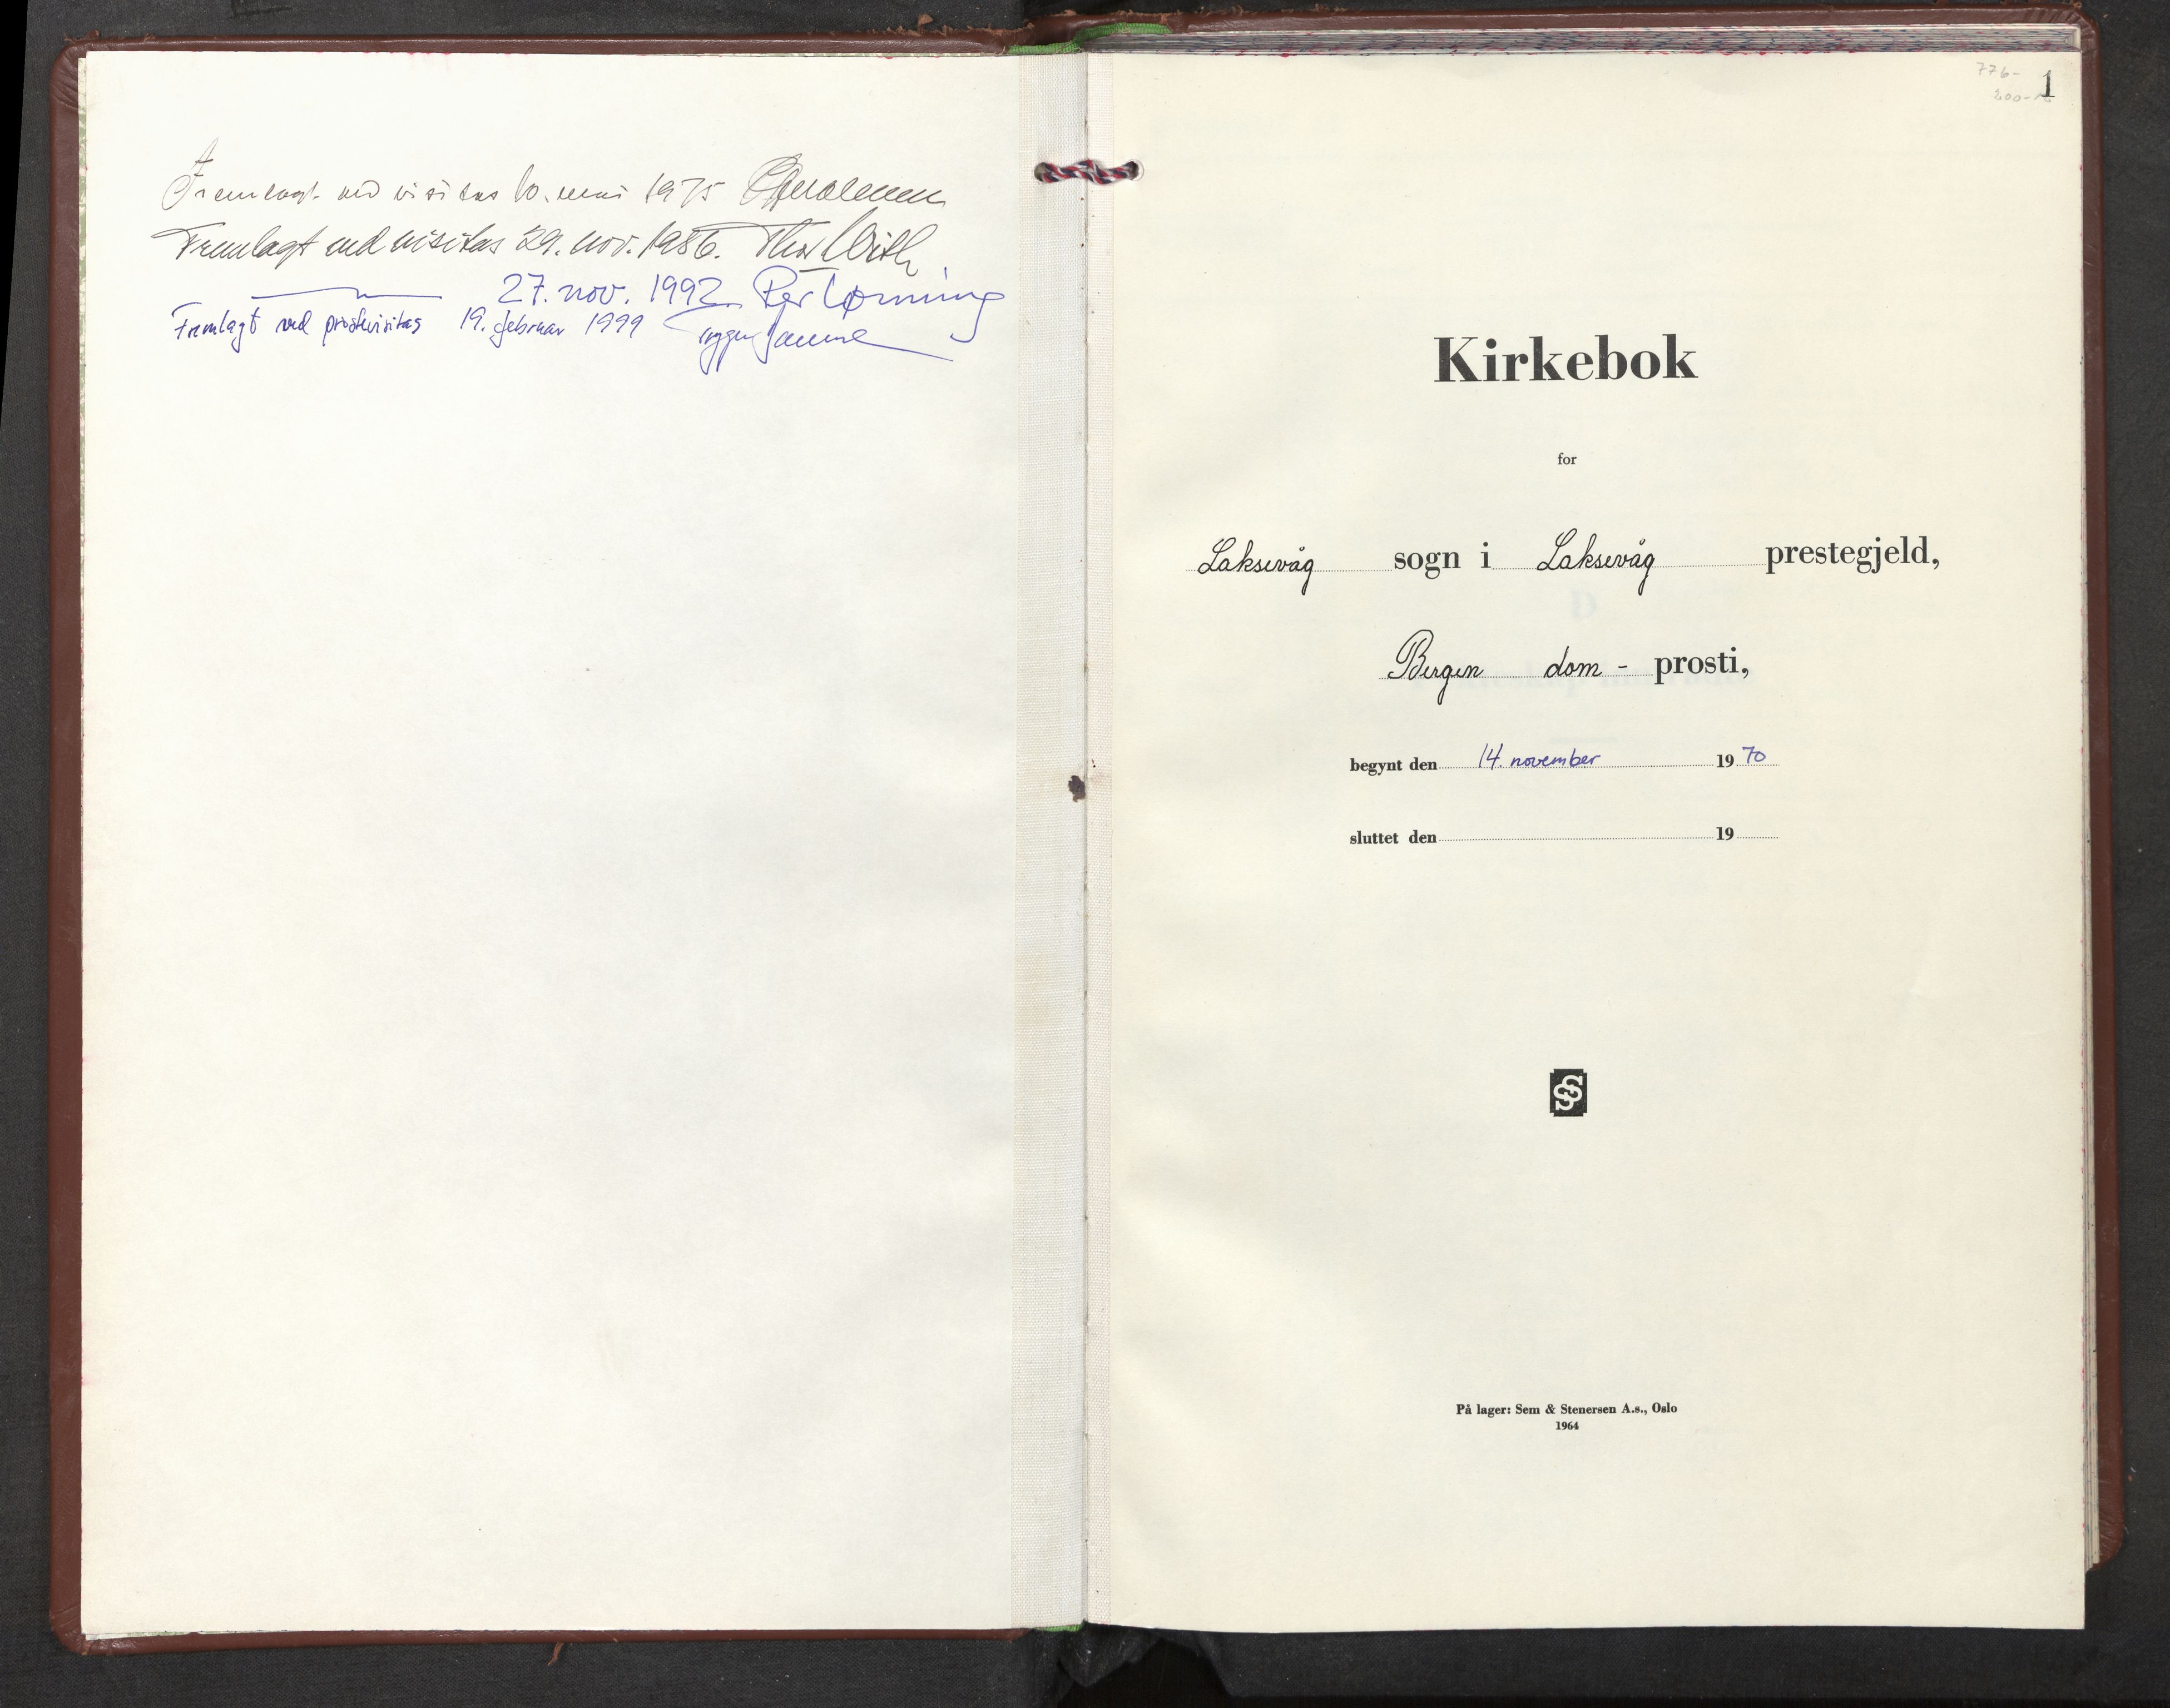 Fremlagt ved visitas 10. mai 1975
Fremlagt ved visitas 29. nov. 1986. Thor With
27. nov. 1992. Per Lønning
Fremlagt ved prostevisitas 19. februar 1999
776-
1
Kirkebok
for
Laksevåg sogn i Laksevåg prestegjeld,
Bergen dom - prosti,
begynt den 14. november 1970
sluttet den 19
SS
På lager: Sem & Stenersen A.s., Oslo
1964